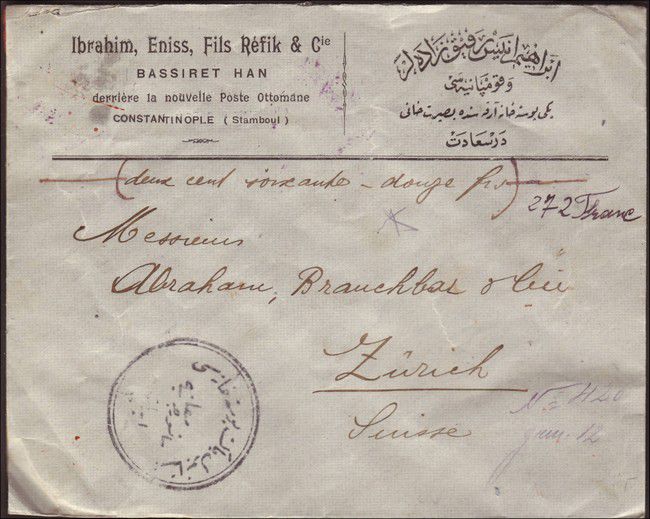 Ibrahim, Eniss, Fils Réfik & Cie
BASSIRET HAN
derrière la nouvelle Poste Ottomane
CONSTANTINOPLE (Stamboul)
ابراهيم انيس رفيق زاده لر
وقومپانيه سى
يكى پوسته خانه آرقه سنده بصيرت خانى
درسعادت
(deux cent soixante-douze frs)
272 Franc
Messieurs
Abraham, Brauchbar & Cie
Zürich
Suisse
No 420